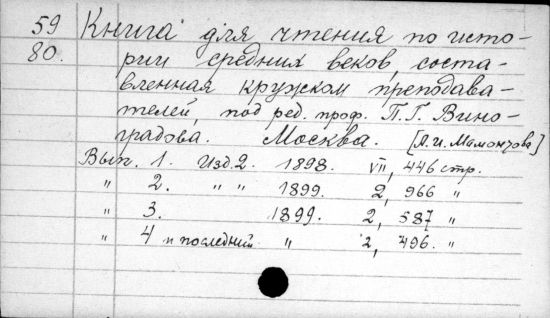 59 Книга для чтения по исто-
80. рии средних веков, соста-
вленная кружком преподава-
телей, под ред. проф. П. Г. Вино-
градова. Москва. [А. И. Мамонтова]
Вып. 1. Изд. 2. 1898. VII, 446 стр.
" 2. " " 1899. 2, 966 "
" 3. 1899. 2, 587 "
" 4 и последний " 2, 496. "